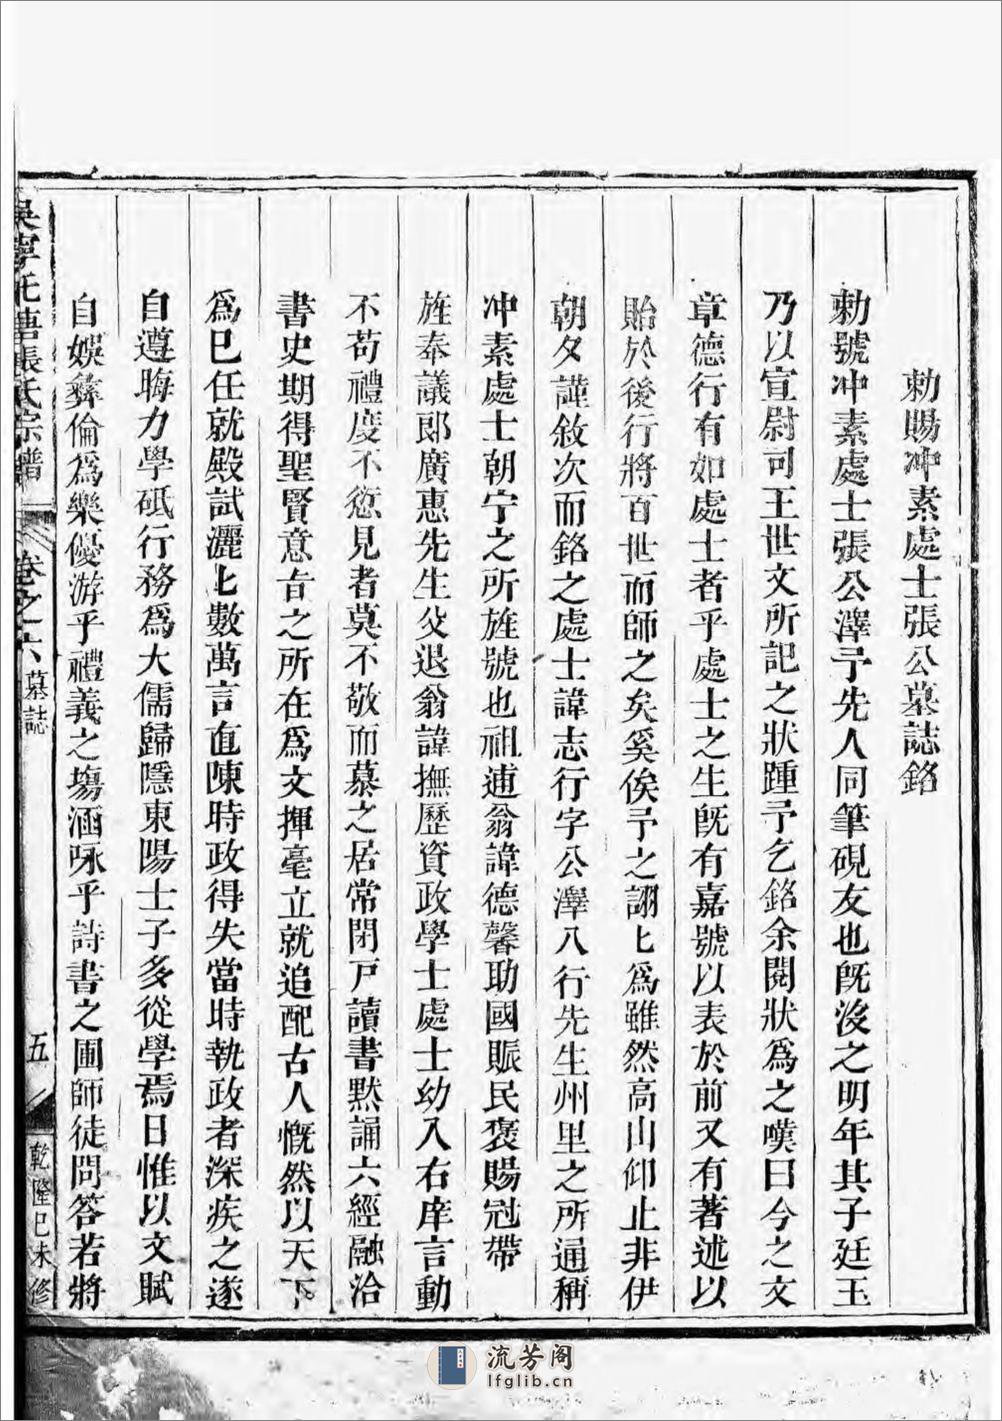 勅賜冲素處士張公墓誌銘
勅號冲素處士張公澤予先人同筆硯友也旣沒之明年其子廷玉
乃以宣尉司王世文所記之狀踵予乞銘余閱狀爲之嘆曰今之文
章德行有如處士者乎處士之生旣有嘉號以表於前又有著述以
貽於後行將百世而師之矣奚俟予之詡匕爲雖然高山仰止非伊
朝夕謹敘次而銘之處士諱志行字公澤八行先生州里之所通稱
冲素處士朝宁之所旌號也祖逋翁諱德馨助國賑民褒賜冠帶
旌奉議郎廣惠先生父退翁諱撫歷資政學士處士幼入右庠言動
不苟禮度不愆見者莫不敬而慕之居常閉戸讀書黙誦六經融洽
書史期得聖賢意旨之所在爲文揮毫立就追配古人慨然以天下
爲巳任就殿試灑匕數萬言直陳時政得失當時執政者深疾之遂
自遵晦力學砥行務爲大儒歸隱東陽士子多從學焉日惟以文賦
自娛彝倫爲樂優游乎禮義之塲涵咏乎詩書之圃師徒問答若將
吳寧托塘張氏宗譜 卷之六 墓誌 五 乾隆巳未修
流芳阁
lfglib.cn